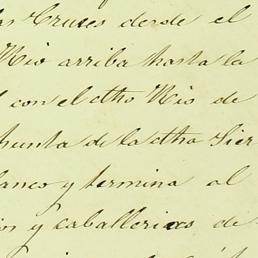 las Cruces desde el
Rio arriba hasta la
con el dho Rio de
punta de la dha Sier
blanco y termina al
y caballerias de